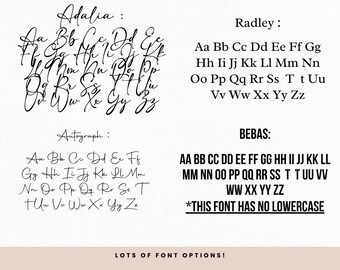 Adalia :
Aa Bb Cc Dd Ee
Ff Gg Hh Ii Jj Kk
Ll Mm Nn Oo Pp
Qq Rr Ss Tt Uu
Vv Ww Xx Yy Zz
Radley :
Aa Bb Cc Dd Ee Ff Gg
Hh Ii Jj Kk Ll Mm Nn
Oo Pp Qq Rr Ss T t Uu
Vv Ww Xx Yy Zz
Autograph :
Aa Bb Cc Dd Ee Ff
Gg Hh Ii Jj Kk Ll Mm
Nn Oo Pp Qq Rr Ss Tt
Uu Vv Ww Xx Yy Zz
BEBAS:
AA BB CC DD EE FF GG HH II JJ KK LL
MM NN OO PP QQ RR SS T T UU VV
WW XX YY ZZ
*THIS FONT HAS NO LOWERCASE
LOTS OF FONT OPTIONS!